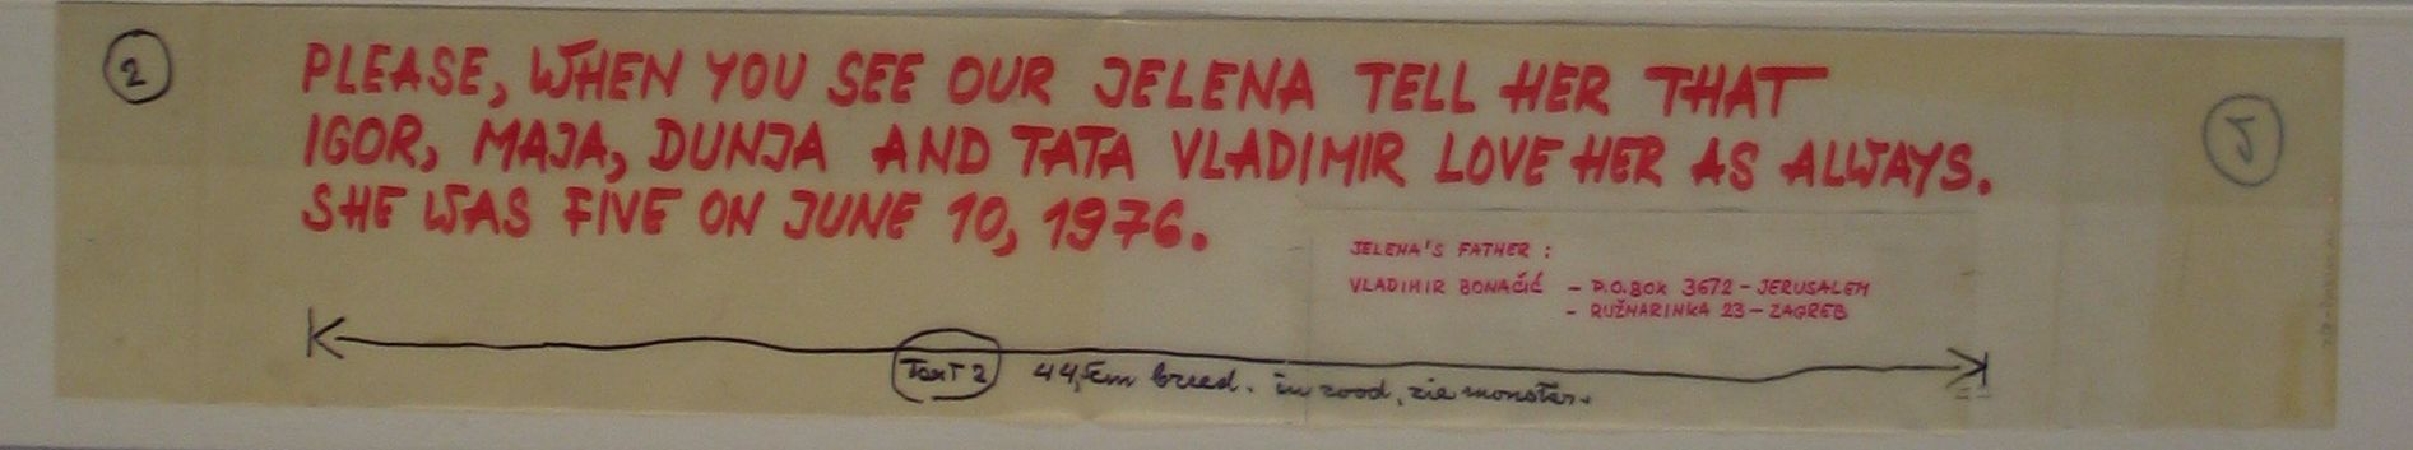 2
PLEASE, WHEN YOU SEE OUR JELENA TELL HER THAT
IGOR, MAJA, DUNJA AND TATA VLADIMIR LOVE HER AS ALWAYS.
SHE WAS FIVE ON JUNE 10, 1976.
JELENA'S FATHER :
VLADIMIR BONAČIĆ – P.O.BOX 3672 – JERUSALEM
– RUŽMARINKA 23 – ZAGREB
Text 2 44,5cm breed. in rood, zie monster.